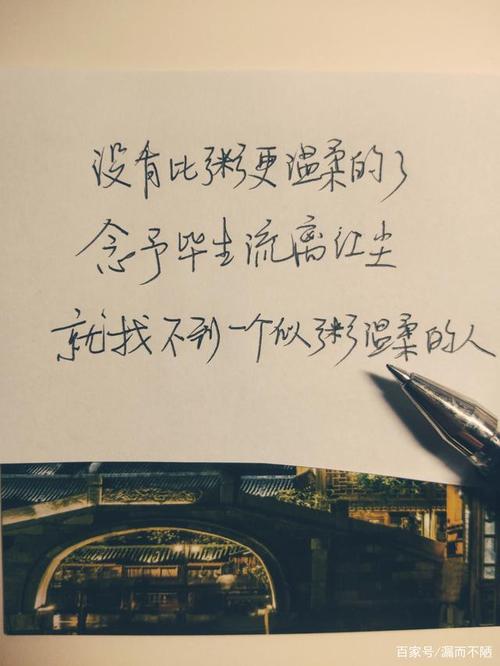 没有比粥更温柔的了
念予毕生流离红尘
就找不到一个似粥温柔的人
百家号/漏而不陋